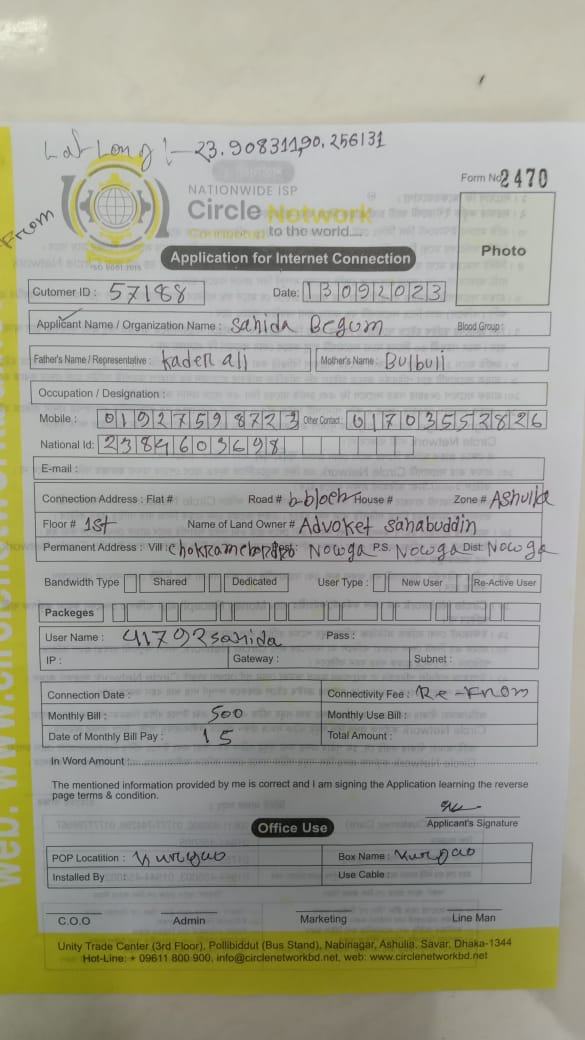 Lat Long :- 23.908311,90.256131
From
Form No 2470
NATIONWIDE ISP
Circle Network
Connecting to the world....
ISO 9001:2015
Photo
Application for Internet Connection
Cutomer ID : 57188 Date: 13092023
Applicant Name / Organization Name : Sahida Begum Blood Group :
Father's Name / Representative : Kader ali Mother's Name : Bulbuli
Occupation / Designation :
Mobile : 01927598723 Other Contact : 01703552826
National Id: 2384603698
E-mail :
Connection Address : Flat # Road # b-bloch House # Zone # Ashulia
Floor # 1st Name of Land Owner # Advoket Sahabuddin
Permanent Address : Vill : Post : Nowga P.S. Nowga Dist: Nowga
Bandwidth Type Shared Dedicated User Type : New User Re-Active User
Packeges
User Name : 41792sahida Pass :
IP : Gateway : Subnet :
Connection Date : Connectivity Fee : Re-From
Monthly Bill : 500 Monthly Use Bill :
Date of Monthly Bill Pay : 15 Total Amount :
In Word Amount :
The mentioned information provided by me is correct and I am signing the Application learning the reverse
page terms & condition.
Applicant's Signature
Office Use
POP Locatition : Box Name :
Installed By Use Cable :
C.O.O Admin Marketing Line Man
Unity Trade Center (3rd Floor), Pollibiddut (Bus Stand), Nabinagar, Ashulia, Savar, Dhaka-1344
Hot-Line: + 09611 800 900, info@circlenetworkbd.net, web: www.circlenetworkbd.net